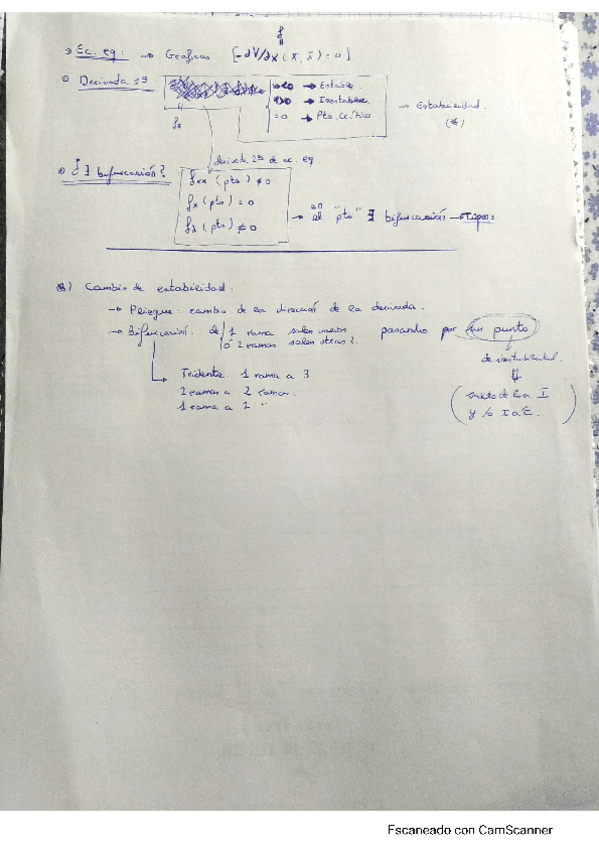 f
→ Ec. eq: → Graficas [-∂V/∂x (x, λ) = 0]
Derivada 1ª
<0 → Estable
>0 → Inestable
= 0 → Pto. crítico
→ Estabilidad.
(*)
fx
derivada 2ª de ec. eq.
¿∃ bifurcación?
fxx (pto) ≠ 0
fx (pto) = 0
fλ (pto) ≠ 0
→ en el "pto" ∃ bifurcación → Tipos:
*) Cambio de estabilidad:
→ Pliegue: cambio de la dirección de la derivada.
→ Bifurcación: de 1 rama salen pasando por un punto
ó 2 ramas salen otras 2.
de inestabilidad.
⇓
Tridente: 1 rama a 3
2 ramas a 2 ramas.
1 rama a 2 "
( de E a I
y/o I a E. )
Escaneado con CamScanner